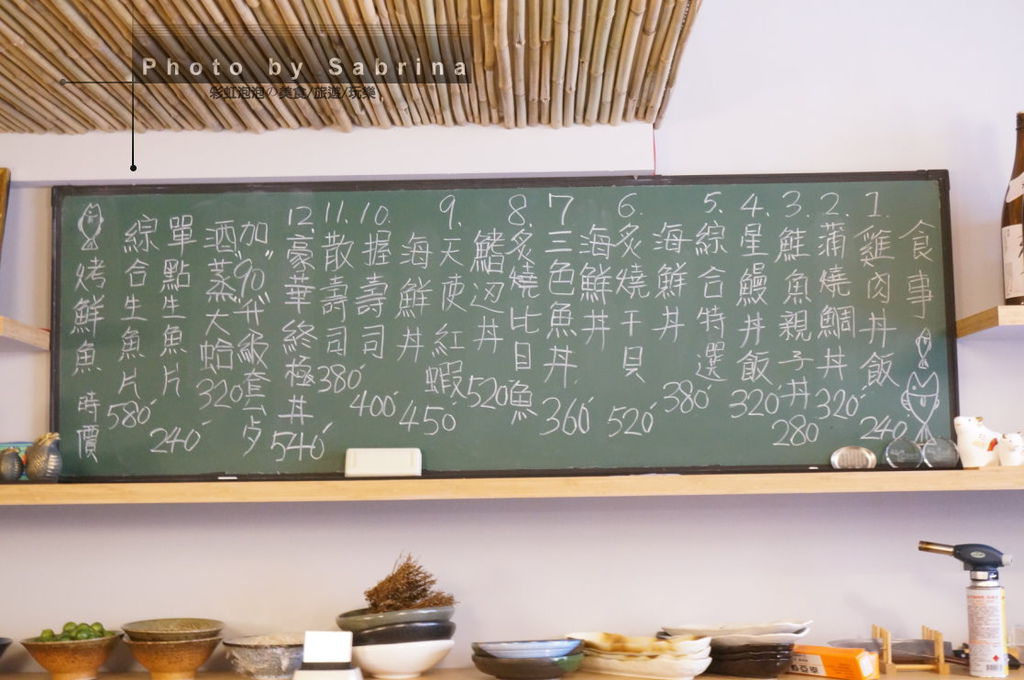 Photo by Sabrina
彩虹泡泡の美食/旅遊/玩樂
食事
1. 雞肉丼飯 240
2. 蒲燒鯛丼 320
3. 鮭魚親子丼 280
4. 星鰻丼飯 320
5. 綜合特選
海鮮丼 380
6. 炙燒干貝
海鮮丼 520
7 三色魚丼 360
8. 炙燒比目魚
鰭边丼 520
9. 天使紅蝦
海鮮丼 450
10. 握壽司 400
11. 散壽司 380
12. 豪華終極丼 540
加"90"升級套餐
酒蒸大蛤 320
單點生魚片 240
綜合生魚片 580
烤鮮魚 時價